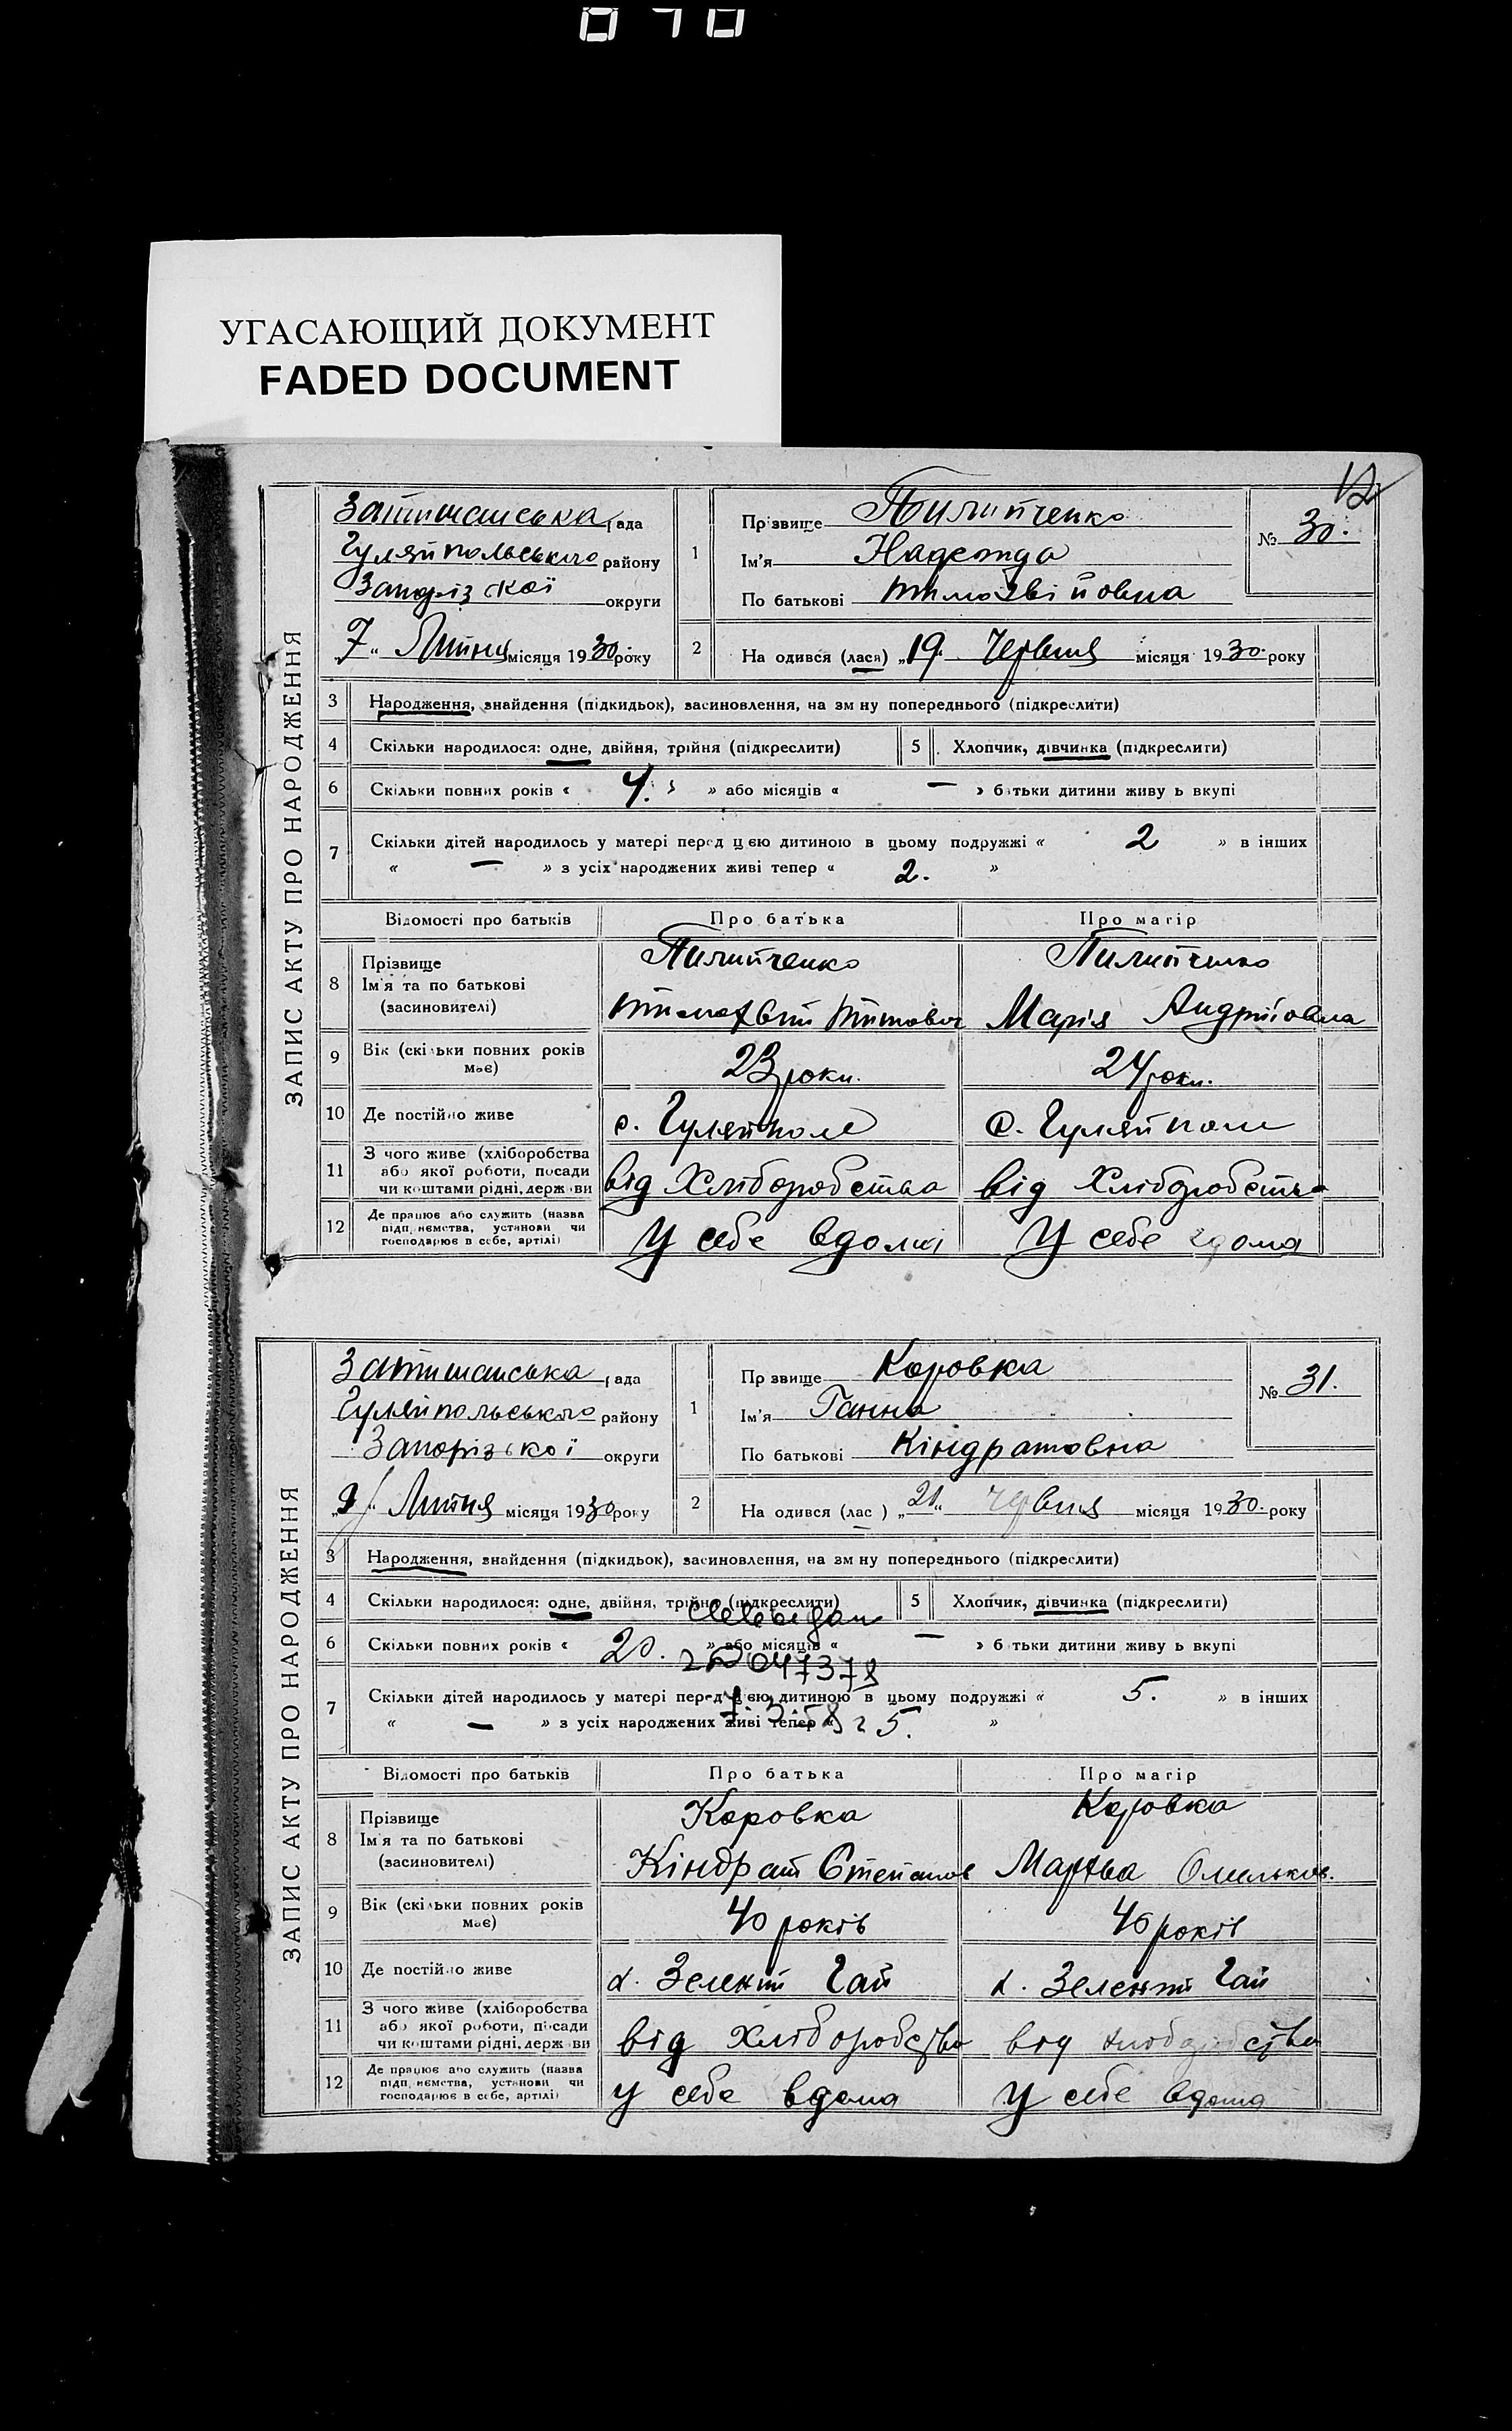 070
УГАСАЮЩИЙ ДОКУМЕНТ
FADED DOCUMENT
12
ЗАПИС АКТУ ПРО НАРОДЖЕННЯ
Затишанська рада
Гуляйпольського району
Запорізської округи
"7" Липня місяця 1930 року
1 Прізвище Пилипченко
Ім'я Надежда
По батькові Тимофвійовна
№ 30.
2 На одився (лася) „19. Червня місяця 1930. року
3 Народження, знайдення (підкидьок), засиновлення, на зм ну попереднього (підкреслити)
4 Скільки народилося: одне, двійня, трійня (підкреслити) 5 Хлопчик, дівчинка (підкреслити)
6 Скільки повних років « 4. » або місяців « — » батьки дитини живу ь вкупі
7 Скільки дітей народилось у матері перед цею дитиною в цьому подружжі « 2 » в інших
« — » з усіх народжених живі тепер « 2. »
Відомості про батьків Про батька Про матір
8 Прізвище Ім'я та по батькові (засиновителі)
Пилипченко Пилипченко
Тимофвій Титович Марія Андріівна
9 Вік (скільки повних років має) 23 роки. 24 роки.
10 Де постійно живе с. Гуляйполе с. Гуляйполе
11 З чого живе (хліборобства або якої роботи, посади чи коштами рідні, держави від Хліборобства від Хліборобства
12 Де працює або служить (назва підприємства, установи чи господарює в себе, артілі) У себе вдома У себе вдома
ЗАПИС АКТУ ПРО НАРОДЖЕННЯ
Затишанська рада
Гуляйпольського району
Запорізської округи
„9" Липня місяця 1930 року
1 Пр звище Коровка
Ім'я Ганна
По батькові Кіндратовна
№ 31.
2 На одився (лас ) „21" червня місяця 1930. року
3 Народження, знайдення (підкидьок), засиновлення, на зм ну попереднього (підкреслити)
4 Скільки народилося: одне, двійня, трійня (підкреслити) 5 Хлопчик, дівчинка (підкреслити)
6 Скільки повних років « 20. » або місяців « — » б тьки дитини живу ь вкупі
047378
7 Скільки дітей народилось у матері перед цею дитиною в цьому подружжі « 5. » в інших
« — » з усіх народжених живі тепер « 5. »
Відомості про батьків Про батька Про матір
8 Прізвище Ім'я та по батькові (засиновителі)
Коровка Коровка
Кіндрат Степанов Марфва Омельков.
9 Вік (скільки повних років має) 40 років 40 років
10 Де постійно живе х. Зелений Гай х. Зелений Гай
11 З чого живе (хліборобства або якої роботи, посади чи коштами рідні, держ ви від хліборобства від хліборобства
12 Де працює або служить (назва підприємства, установи чи господарює в себе, артілі) у себе вдома У себе вдома